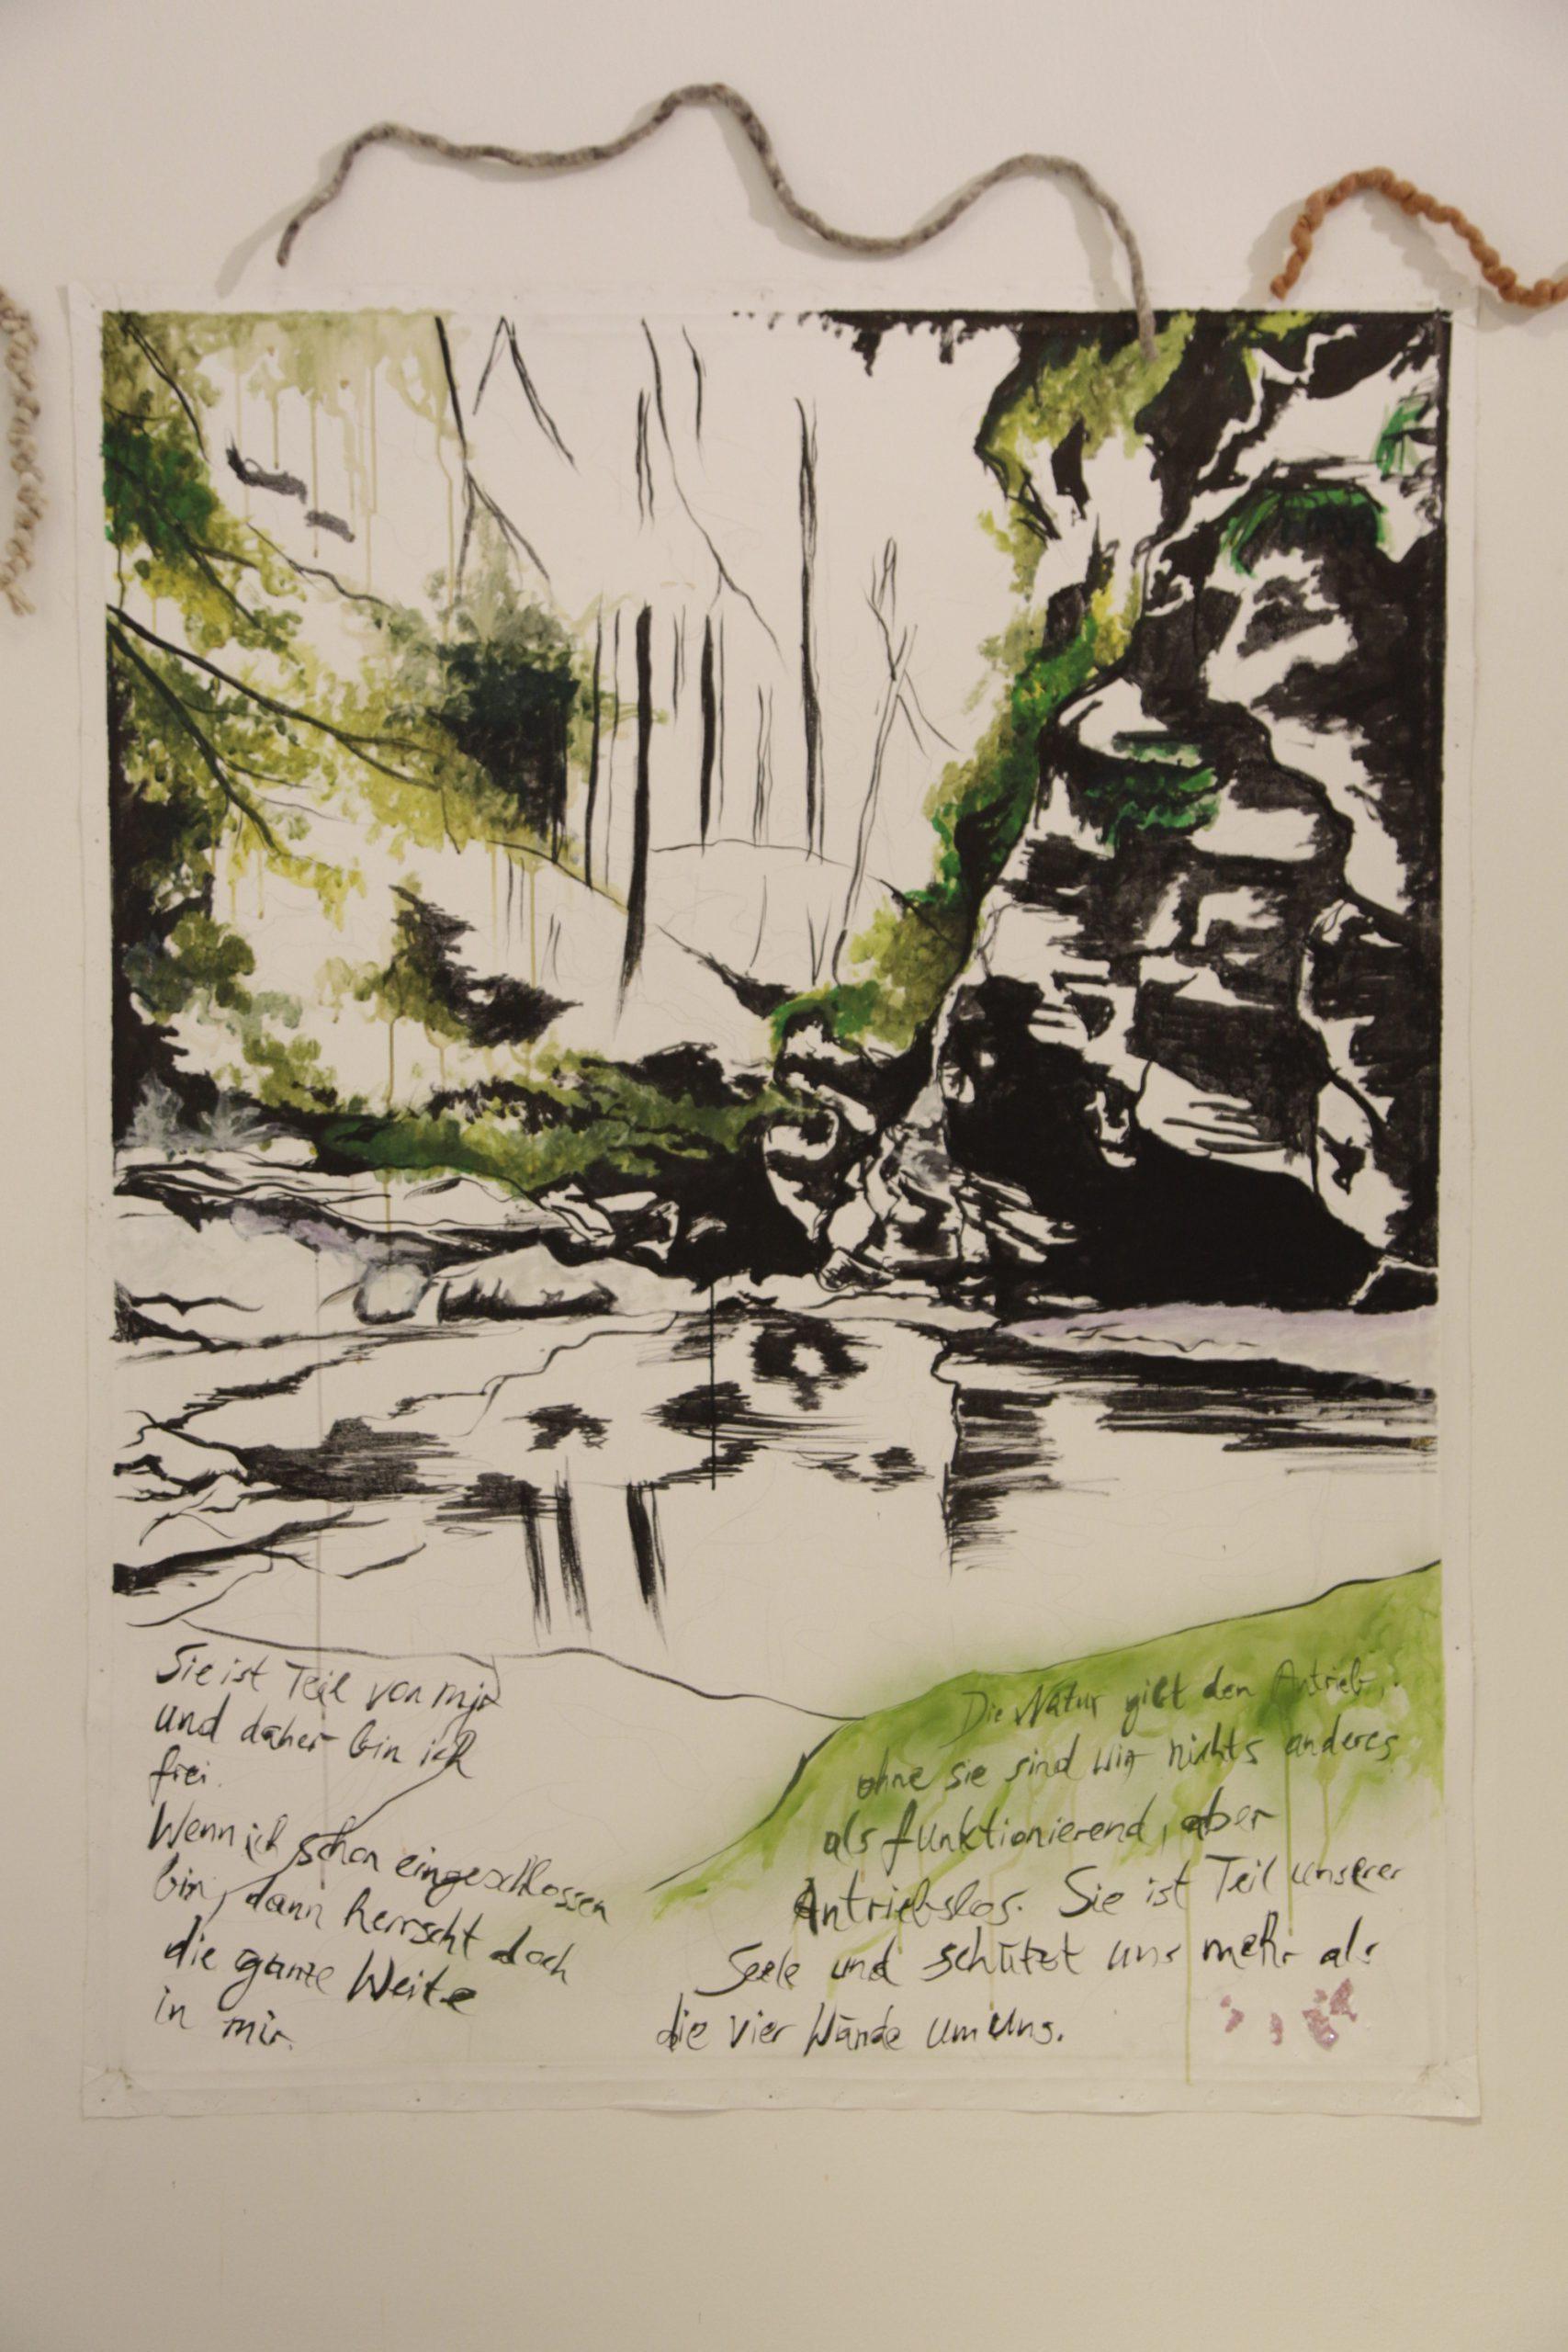 Sie ist Teil von mir
und daher bin ich
frei.
Wenn ich schon eingeschlossen
bin, dann herrscht doch
die ganze Weite
in mir.
Die Natur gibt den Antrieb,
ohne sie sind wir nichts anderes
als funktionierend, aber
Antriebslos. Sie ist Teil unserer
Seele und schützt uns mehr als
die vier Wände um uns.